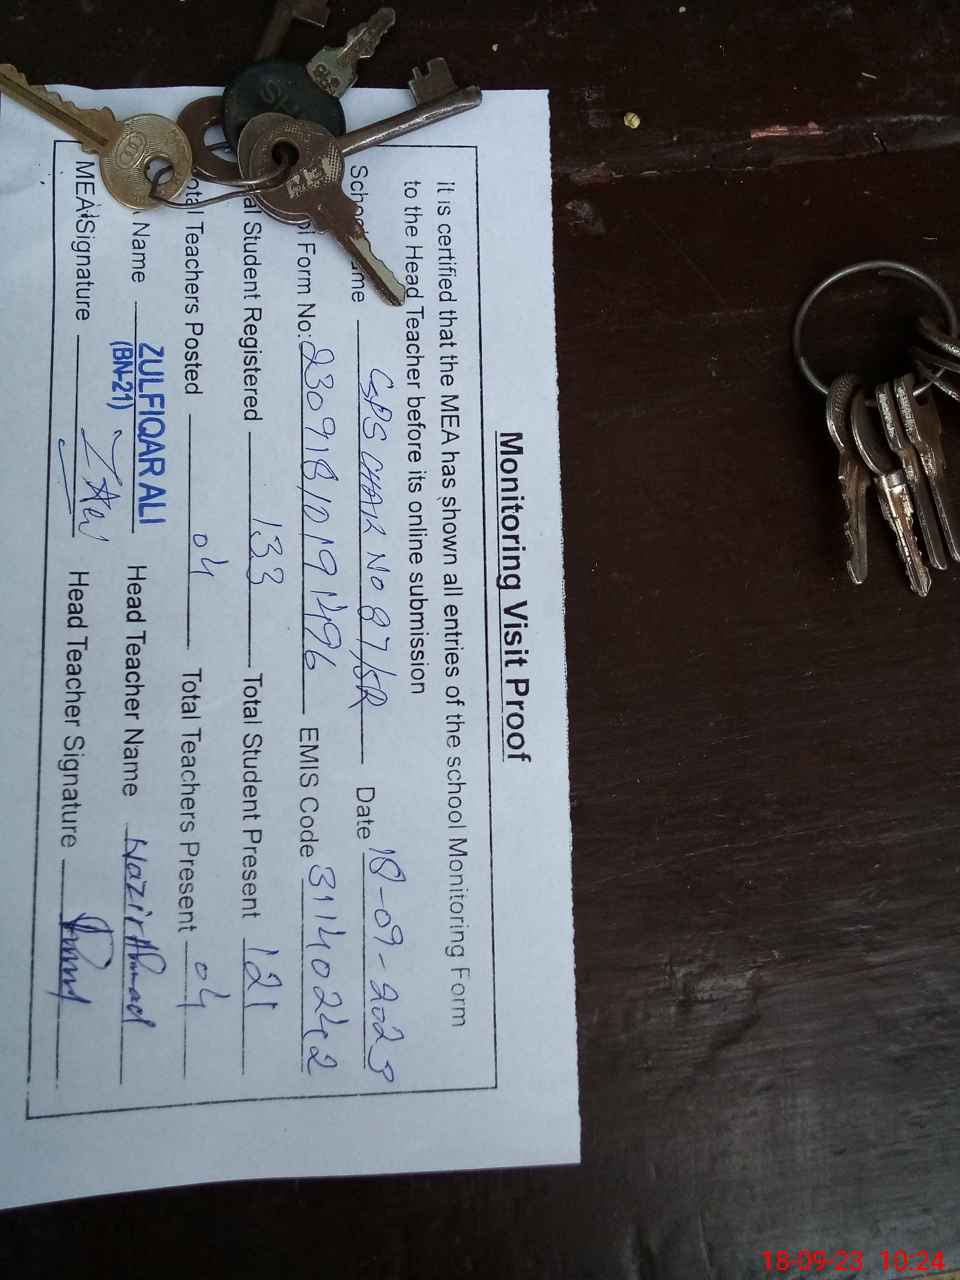 Monitoring Visit Proof
It is certified that the MEA has shown all entries of the school Monitoring Form
to the Head Teacher before its online submission
School Name GPS CHAK No 87/5R Date 18-09-2023
ol Form No: 23091810191496 EMIS Code 31140242
al Student Registered 133 Total Student Present 121
otal Teachers Posted 04 Total Teachers Present 04
Name ZULFIQAR ALI Head Teacher Name Nazir Ahmad
(BN-21)
MEA Signature ZAli Head Teacher Signature
18-09-23 10:24